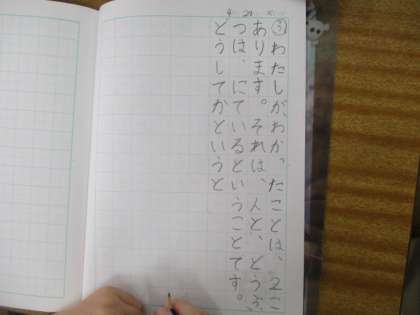 ③わたしが、わかったことは、2こ
あります。それは、人と、どうぶ
つは、にているということです。
どうしてかというと